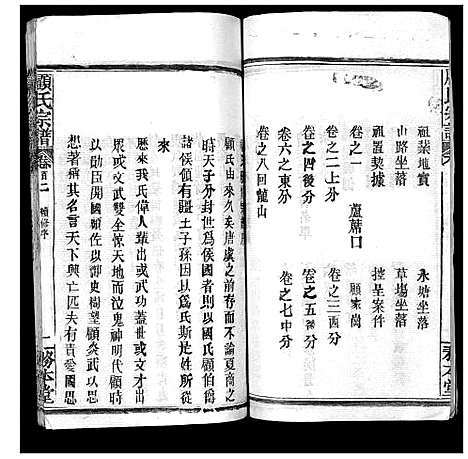 祖業地實 永塘坐落
山路坐落 草塲坐落
祖置契據 控呈案件
卷之一 蘆蓆口
卷之二上分 卷之三西分
卷之四後分 卷之五
卷六之東分 卷之七中分
卷之八回龍山
務本堂
顧氏由來久矣唐虞之前存而不論夏商之
時天子分封世爲侯國者則以國氏顧伯亦
諸侯領有疆土子孫因以爲氏斯姓之所從
來
歷來我氏偉人輩出或以武功蓋世或以文才出
衆或文武雙全驚天地而泣鬼神明代顧時
以勛臣開國顧佐以御史樹望顧炎武以思
想著稱其名言天下興亡匹夫有責愛國思
顧氏宗譜 卷首二 續修序 二 務本堂